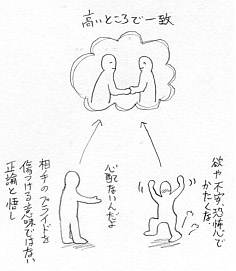 高いところで一致
欲や不安、恐怖心で
かたくな
心配ないんだよ
相手のプライドを
傷つける意味ではない
正論と悟し